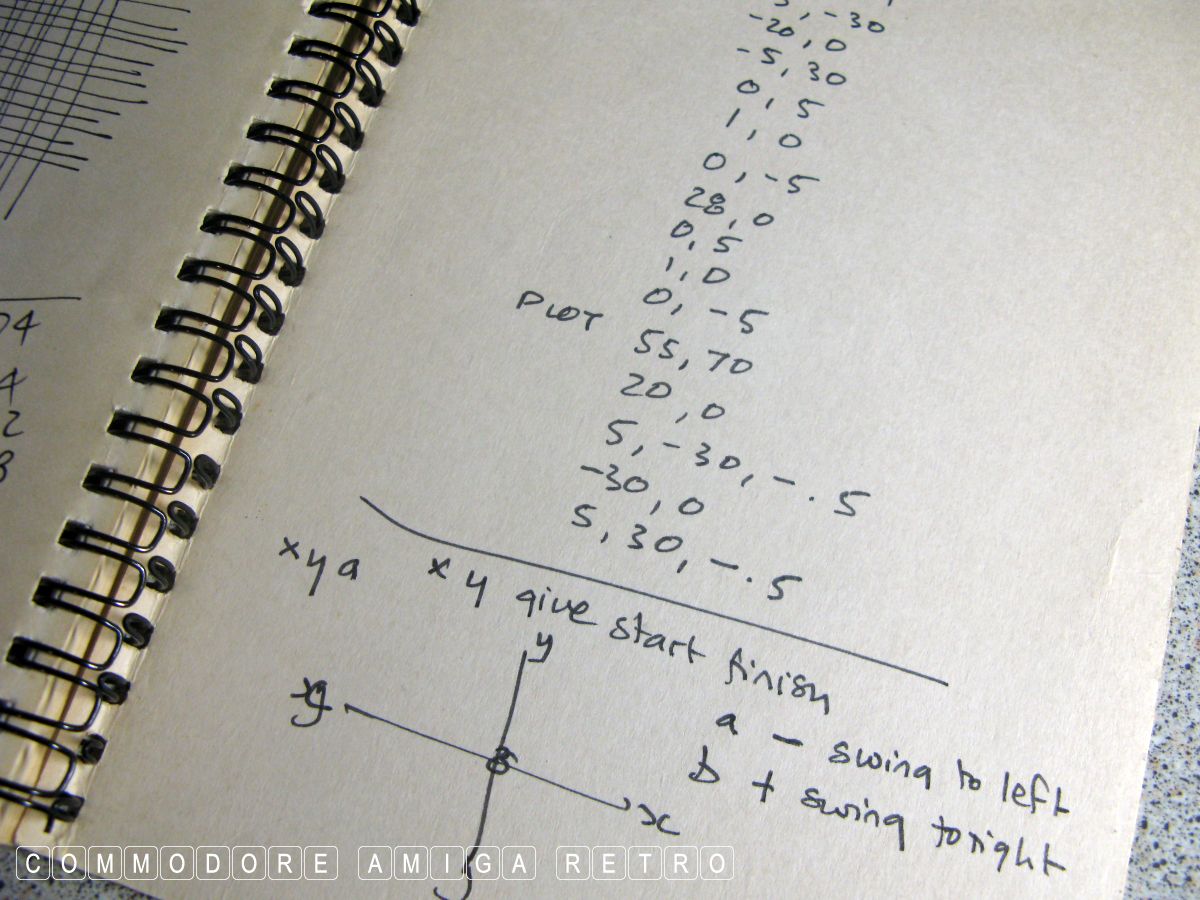 , -30
-20, 0
-5, 30
0, 5
1, 0
0, -5
28, 0
0, 5
1, 0
0, -5
PLOT 55, 70
20, 0
5, -30, -.5
-30, 0
5, 30, -.5
x y a x y give start finish
a - swing to left
b + swing to right
y
x
4
A
2
3
COMMODORE AMIGA RETRO